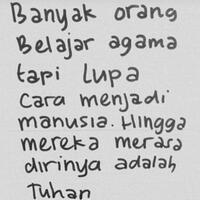 Banyak orang
Belajar agama
tapi Lupa
Cara menjadi
manusia. Hingga
mereka merasa
dirinya adalah
Tuhan